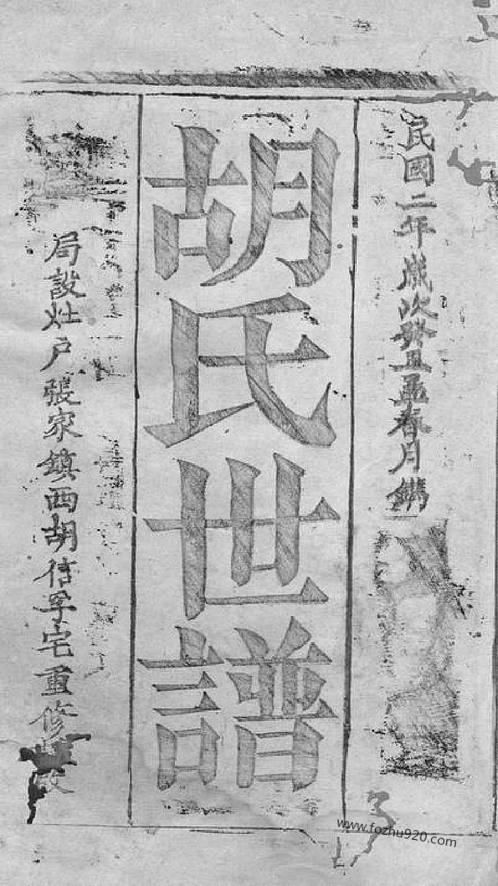 民國二年歲次癸丑孟春月鐫
胡氏世譜
局設灶户張家鎮西胡信孚宅重修
www.fozhu920.com